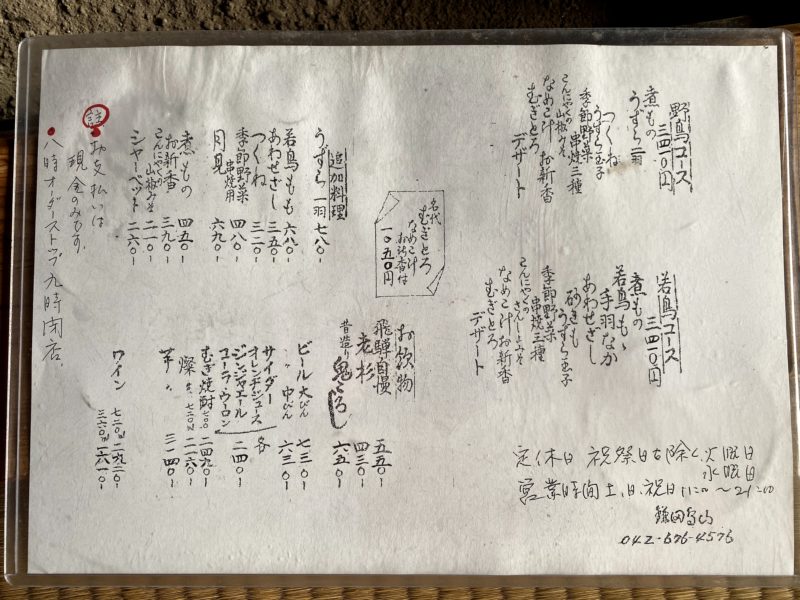 野鳥コース
三四一〇円
煮もの
うずら一羽
つくね
うずら玉子
季節野菜
串焼三種
こんにゃくの
山椒みそ
なめこ汁 お新香
むぎとろ
デザート
若鳥コース
三四一〇円
煮もの
若鳥もも
手羽なか
あわせざし
砂ぎも
うずら玉子
季節野菜
串焼三種
こんにゃくの
さんしょみそ
なめこ汁お新香
むぎとろ
デザート
名代
むぎとろ
なめこ汁
お新香付
一〇五〇円
追加料理
うずら一羽 七八〇-
若鳥もも 六八〇-
あわせざし 三五〇-
つくね 三二〇-
季節野菜
串焼用 四八〇-
月見 六九〇-
煮もの 四五〇-
お新香 三九〇-
こんにゃくの
山椒みそ 二一〇-
シャーベット 二六〇-
註
お支払いは
現金のみです。
八時オーダーストップ 九時閉店。
お飲物
飛騨自慢
鬼ころし 五五〇-
老杉 四三〇-
昔造り 六五〇-
ビール大びん 七三〇-
〃 中びん 六三〇-
サイダー
オレンヂジュース
ジンジャエール
コーラ・ウーロン
各 二四〇-
むぎ焼酎 七〇〇 二四九〇-
燦 七二〇 二一六〇-
芋〃 三一四〇-
ワイン 七二〇ml 一九二〇-
三六〇ml 一六一〇-
定休日 祝祭日を除く、火曜日
水曜日
営業時間 土、日、祝日 11:00~21:00
鎌田鳥山
042-676-4576